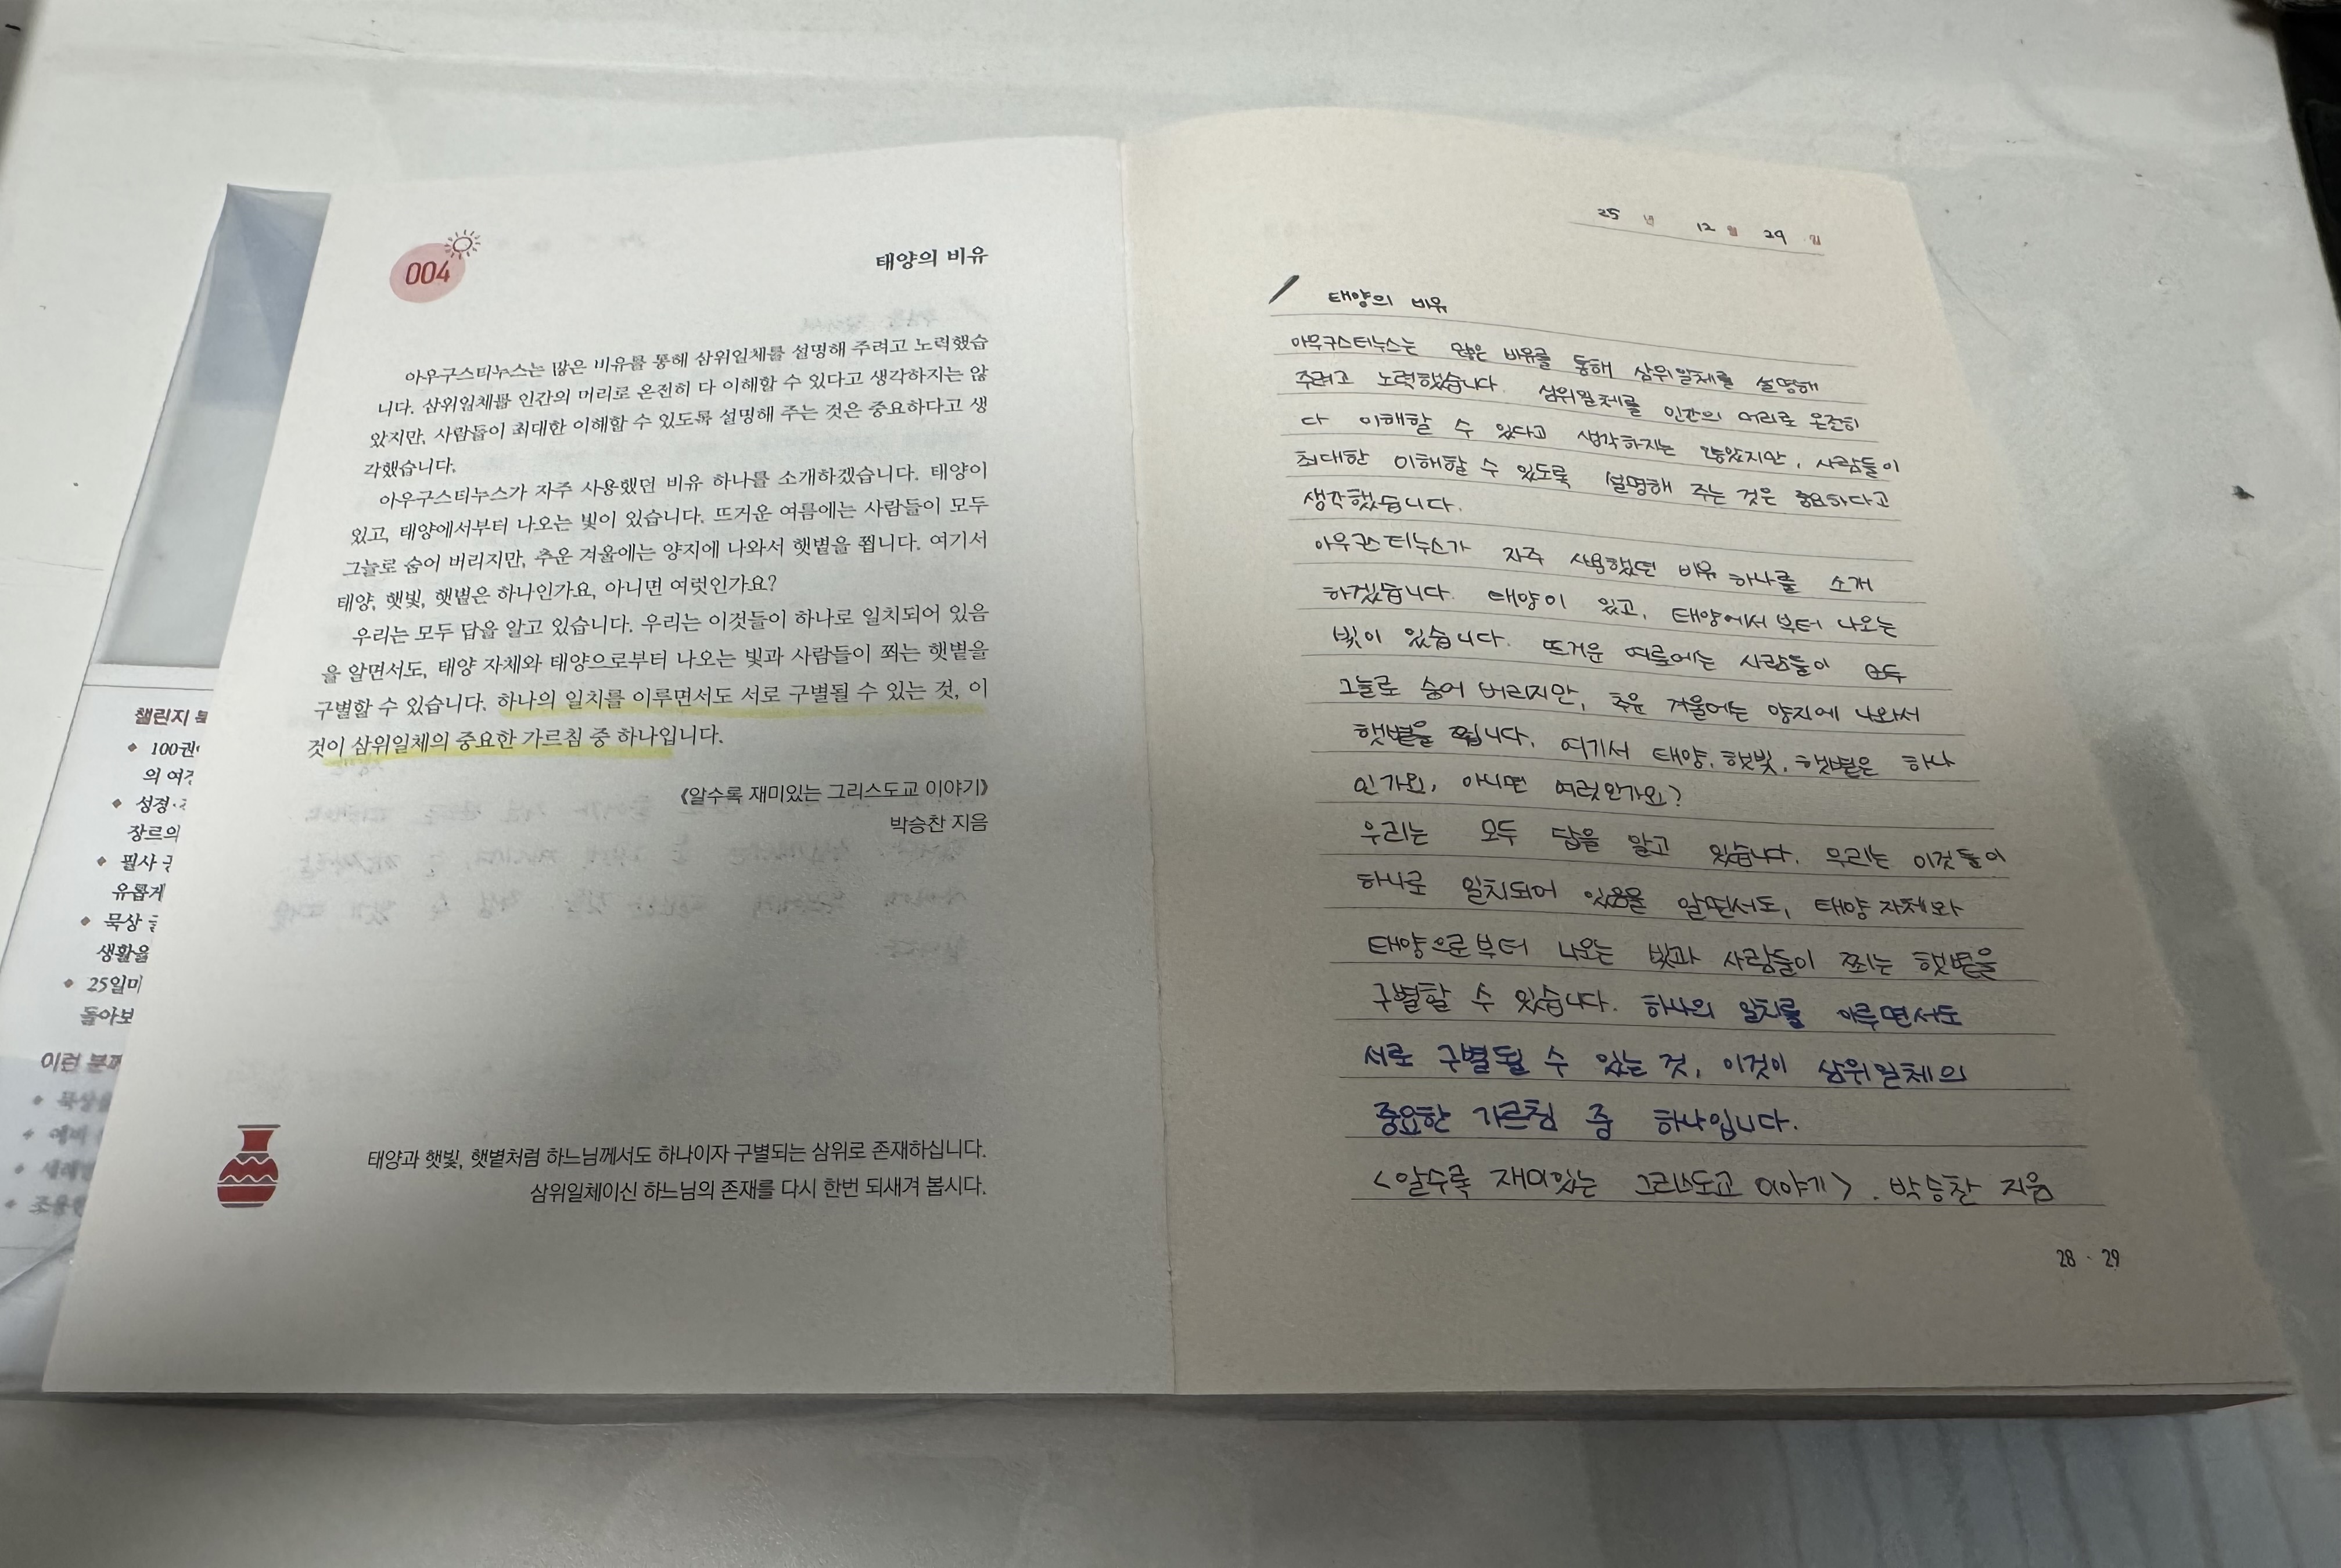 004
태양의 비유
아우구스티누스는 많은 비유를 통해 삼위일체를 설명해 주려고 노력했습
니다. 삼위일체를 인간의 머리로 온전히 다 이해할 수 있다고 생각하지는 않
았지만, 사람들이 최대한 이해할 수 있도록 설명해 주는 것은 중요하다고 생
각했습니다.
아우구스티누스가 자주 사용했던 비유 하나를 소개하겠습니다. 태양이
있고, 태양에서부터 나오는 빛이 있습니다. 뜨거운 여름에는 사람들이 모두
그늘로 숨어 버리지만, 추운 겨울에는 양지에 나와서 햇볕을 쬡니다. 여기서
태양, 햇빛, 햇볕은 하나인가요, 아니면 여럿인가요?
우리는 모두 답을 알고 있습니다. 우리는 이것들이 하나로 일치되어 있음
을 알면서도, 태양 자체와 태양으로부터 나오는 빛과 사람들이 쬐는 햇볕을
구별할 수 있습니다. 하나의 일치를 이루면서도 서로 구별될 수 있는 것, 이
것이 삼위일체의 중요한 가르침 중 하나입니다.
《알수록 재미있는 그리스도교 이야기》
박승찬 지음
태양과 햇빛, 햇볕처럼 하느님께서도 하나이자 구별되는 삼위로 존재하십니다.
삼위일체이신 하느님의 존재를 다시 한번 되새겨 봅시다.
챌린지
◆ 100권
의 여정
◆ 성경·
장르의
◆ 필사
유롭게
◆ 묵상
생활을
◆ 25일마
돌아보
이런 분께
25 년 12 월 29 일
태양의 비유
아우구스티누스는 많은 비유를 통해 삼위일체를 설명해
주려고 노력했습니다. 삼위일체를 인간의 머리로 온전히
다 이해할 수 있다고 생각하지는 않았지만, 사람들이
최대한 이해할 수 있도록 설명해 주는 것은 중요하다고
생각했습니다.
아우구스티누스가 자주 사용했던 비유 하나를 소개
하겠습니다. 태양이 있고, 태양에서부터 나오는
빛이 있습니다. 뜨거운 여름에는 사람들이 모두
그늘로 숨어 버리지만, 추운 겨울에는 양지에 나와서
햇볕을 쬡니다. 여기서 태양, 햇빛, 햇볕은 하나
인가요, 아니면 여럿인가요?
우리는 모두 답을 알고 있습니다. 우리는 이것들이
하나로 일치되어 있음을 알면서도, 태양 자체와
태양으로부터 나오는 빛과 사람들이 쬐는 햇볕을
구별할 수 있습니다. 하나의 일치를 이루면서도
서로 구별될 수 있는 것, 이것이 삼위일체의
중요한 가르침 중 하나입니다.
<알수록 재미있는 그리스도교 이야기>. 박승찬 지음
28 · 29